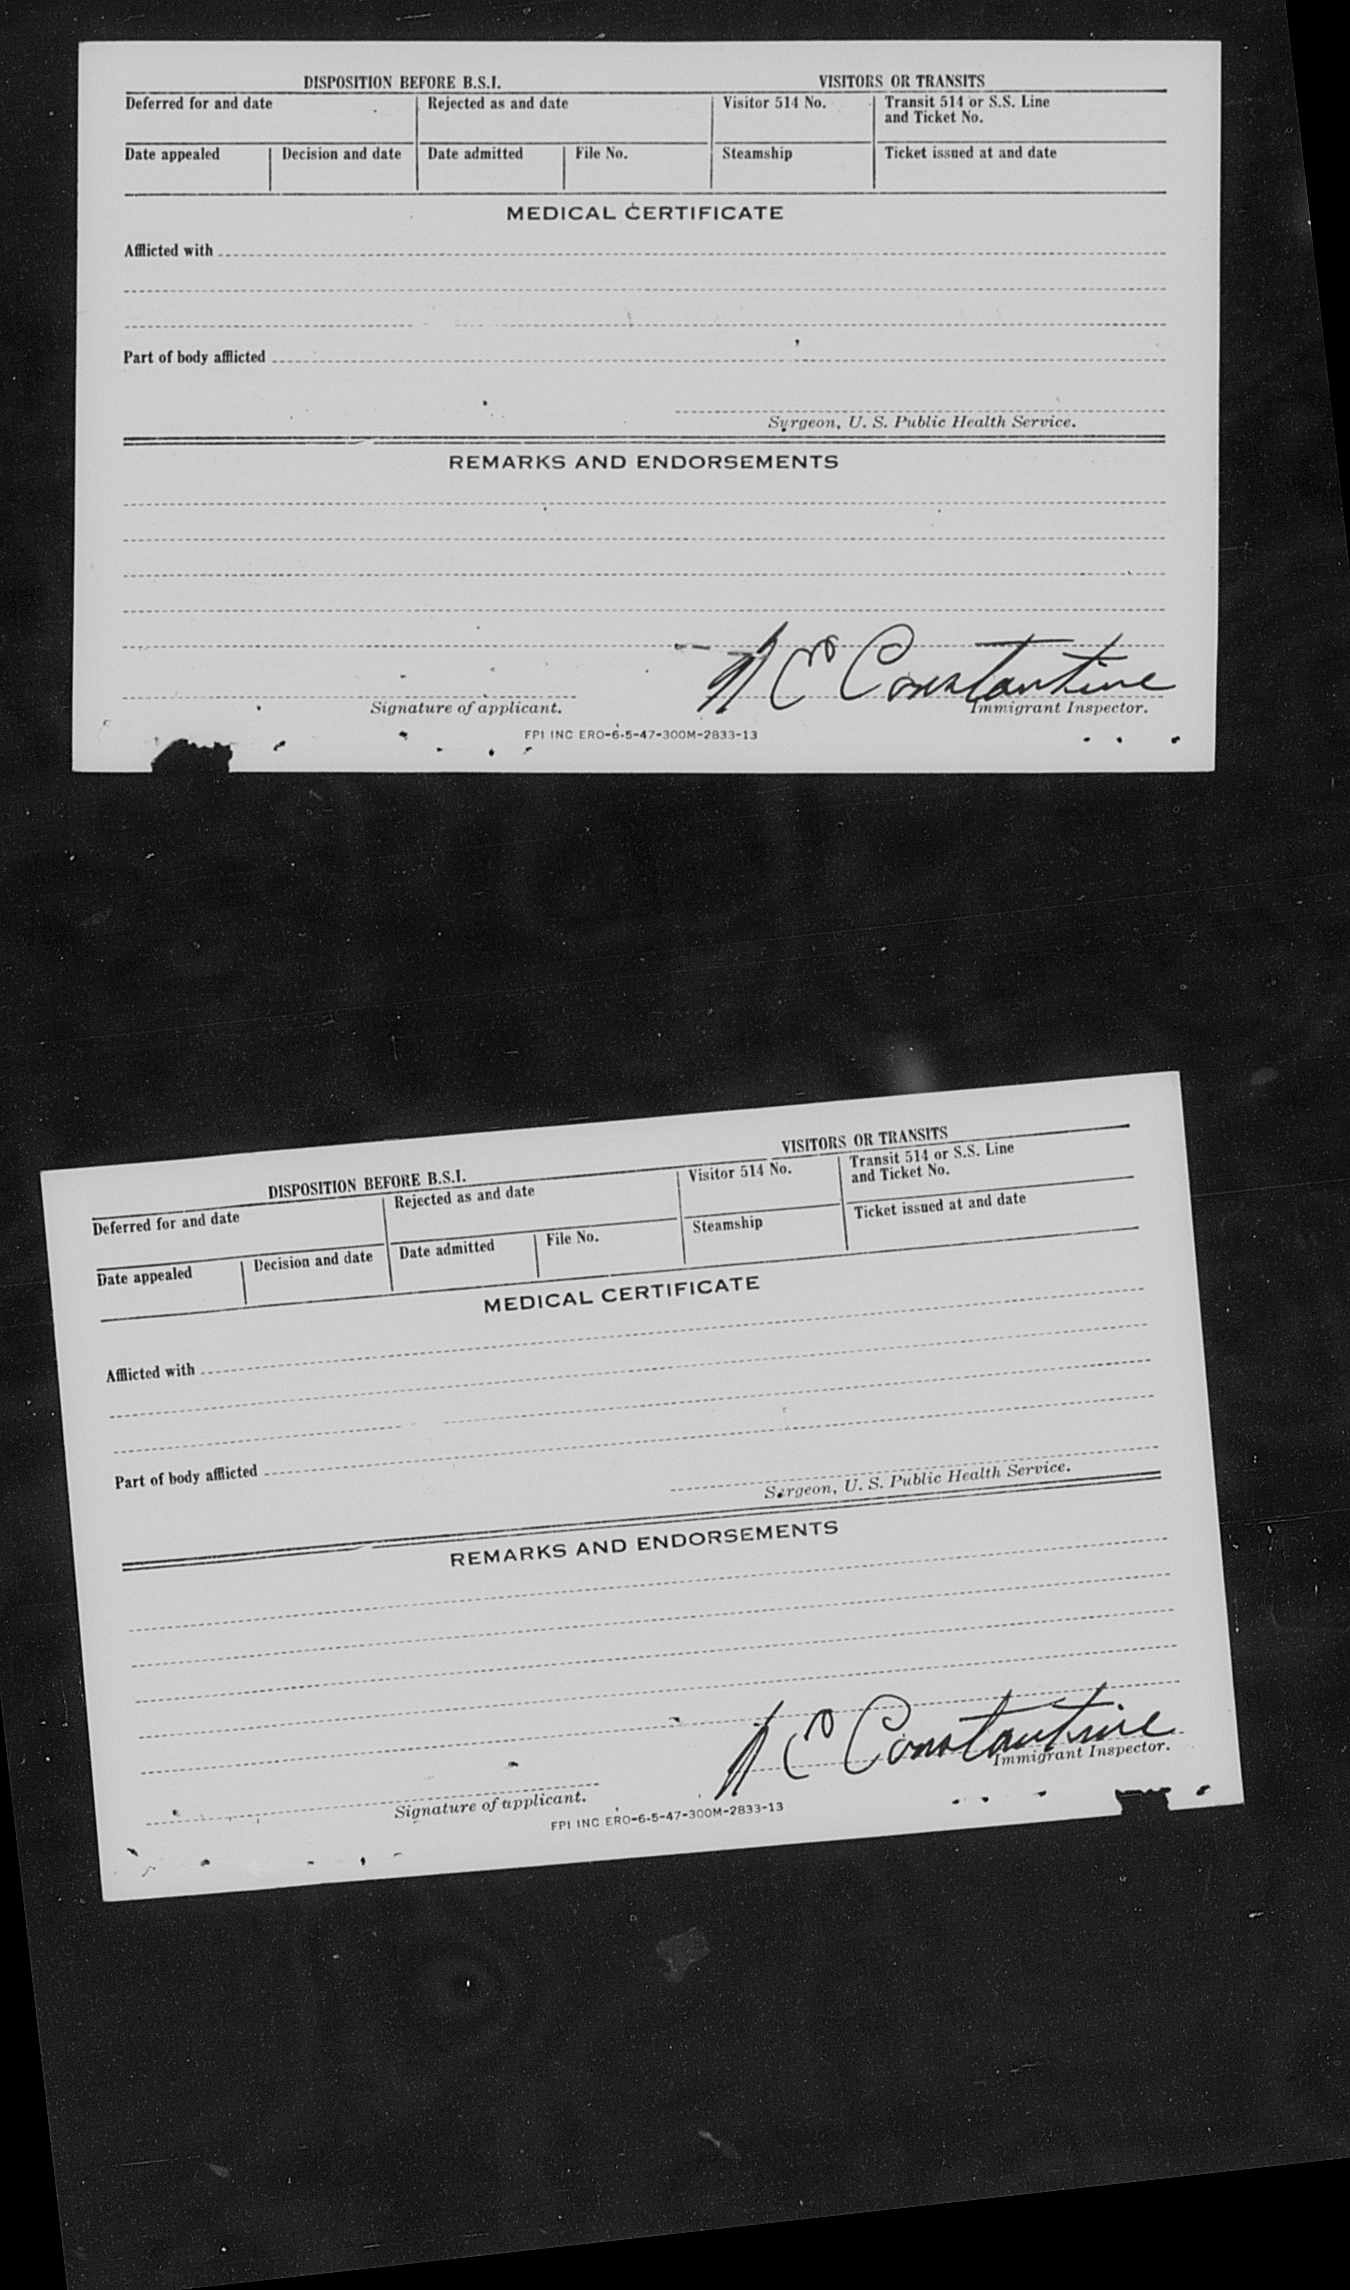 DISPOSITION BEFORE B.S.I. VISITORS OR TRANSITS
Deferred for and date Rejected as and date Visitor 514 No. Transit 514 or S.S. Line
and Ticket No.
Date appealed Decision and date Date admitted File No. Steamship Ticket issued at and date
MEDICAL CERTIFICATE
Afflicted with
Part of body afflicted
Surgeon, U. S. Public Health Service.
REMARKS AND ENDORSEMENTS
N C Constantine
Signature of applicant. Immigrant Inspector.
FPI INC ERO-6-5-47-300M-2833-13
DISPOSITION BEFORE B.S.I. VISITORS OR TRANSITS
Deferred for and date Rejected as and date Visitor 514 No. Transit 514 or S.S. Line
and Ticket No.
Date appealed Decision and date Date admitted File No. Steamship Ticket issued at and date
MEDICAL CERTIFICATE
Afflicted with
Part of body afflicted
Surgeon, U. S. Public Health Service.
REMARKS AND ENDORSEMENTS
N C Constantine
Signature of applicant. Immigrant Inspector.
FPI INC ERO-6-5-47-300M-2833-13